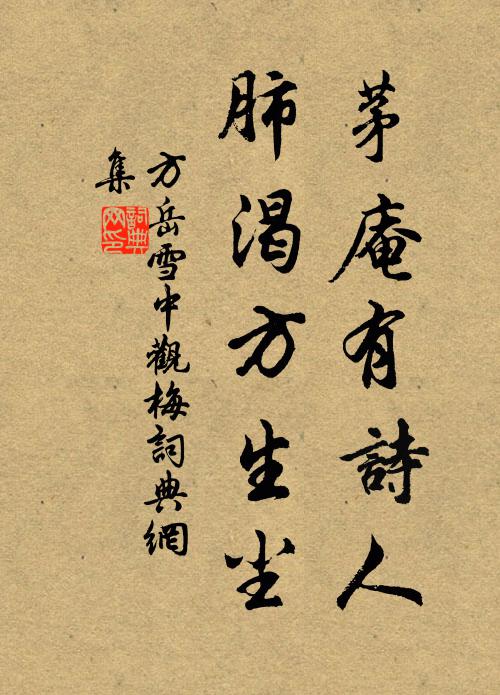 茅庵有詩人
肺渴方生尘
方岳雪中觀梅詞典網
集
詞典网印